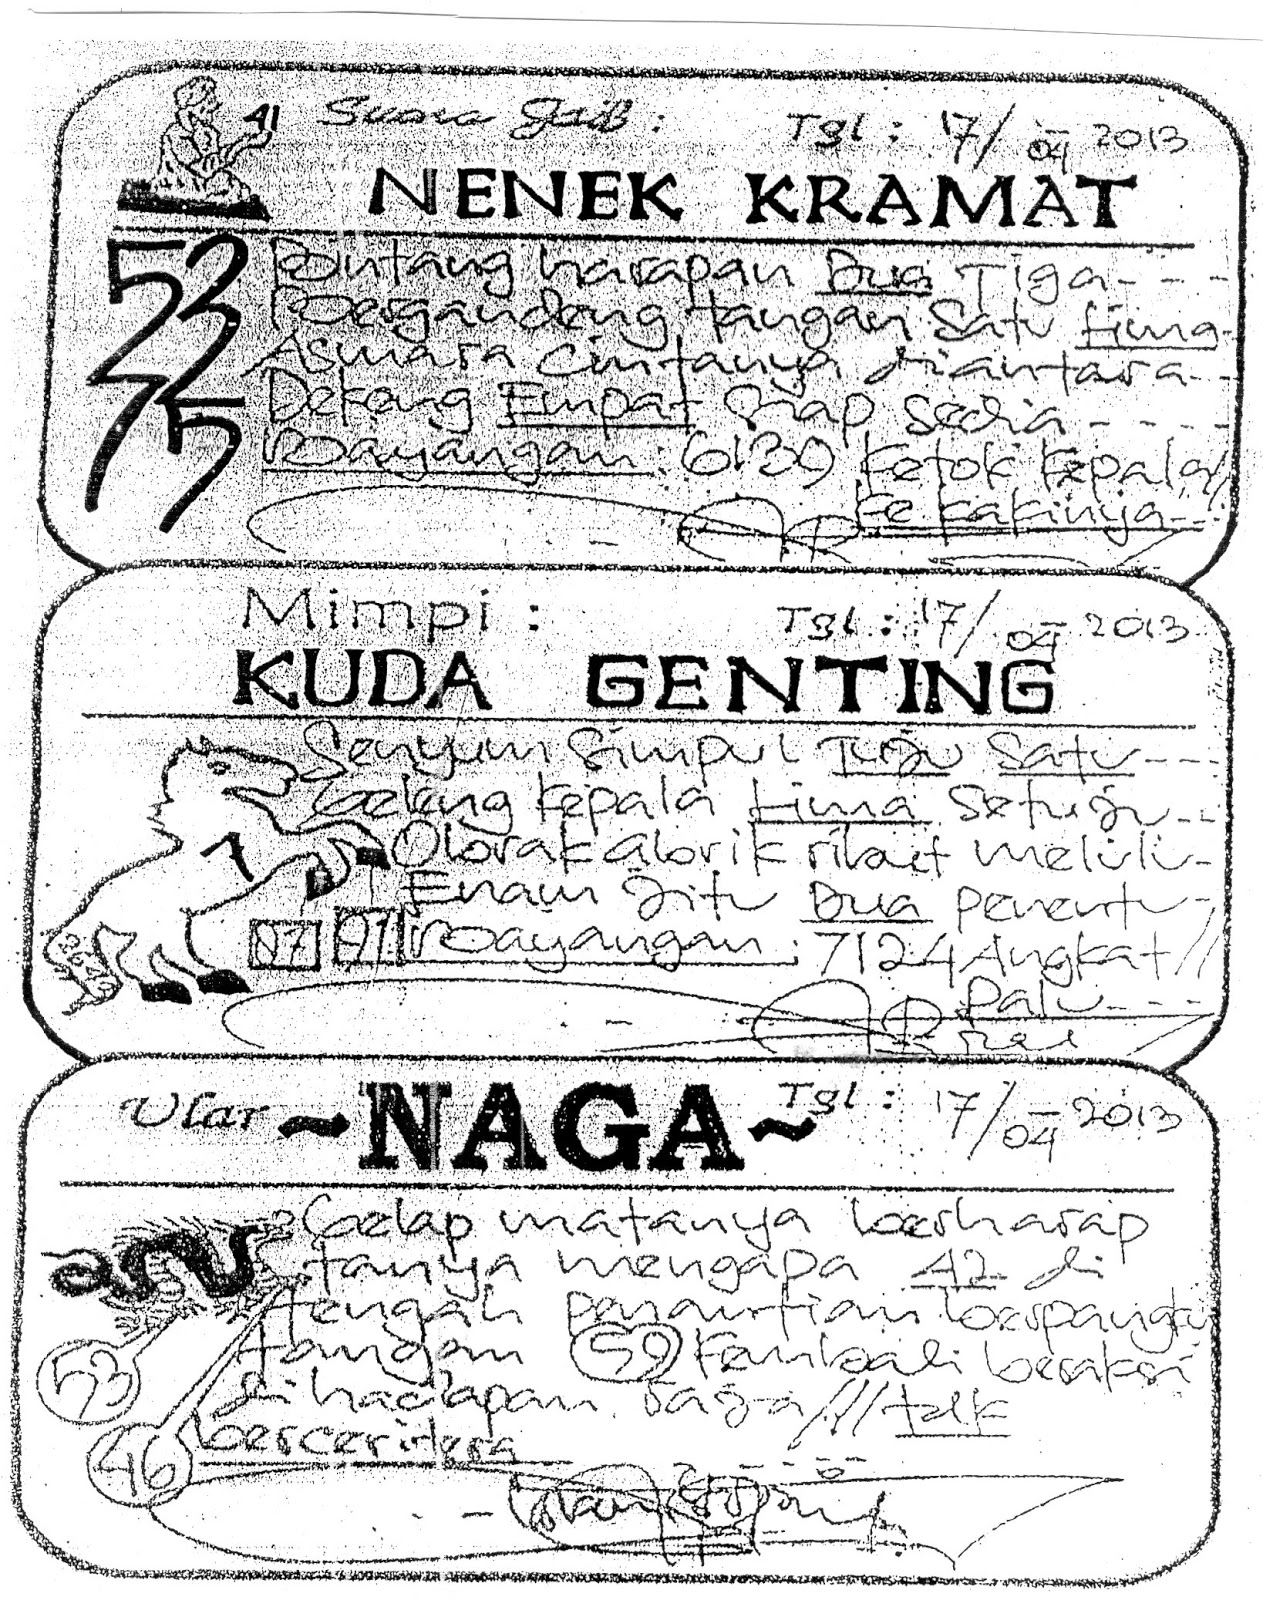 41
Suara Jaib : Tgl : 17/04 2013
NENEK KRAMAT
52
75
Bintang harapan Dua Tiga - - -
Bergandeng tangan Satu Lima -
Asmara Cintanya diantara - -
Dekeng Empat Siap sedia - - - -
Bayangan : 6139 Ketok Kepala//
Ke kakinya - -
Mimpi : Tgl : 17/04 2013
KUDA GENTING
Senyum Simpul Tuju Satu - - -
Geleng Kepala Lima Setuju - -
Obrak Abrik ribut melulu -
Enam Jitu Dua penentu -
07 97 Bayangan : 7124 Angkat//
Palu - - -
Ular ~NAGA~ Tgl : 17/04 2013
Gelap matanya berharap
tanya mengapa 42 di
tengah penantian berpangku
tangan 59 Kembali beraksi
dihadapan raja /// tdk
berceritera
53
46